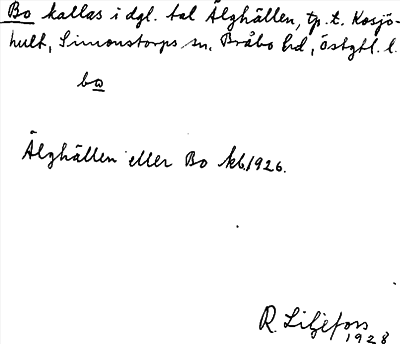 Bo kallas i dgl. tal Älghällen, tp. t. Kosjö-
hult, Simonstorps sn. Bråbo hd, östgtl. l.
bo
Älghällen eller Bo kb. 1926.
R. Liljefors
1928